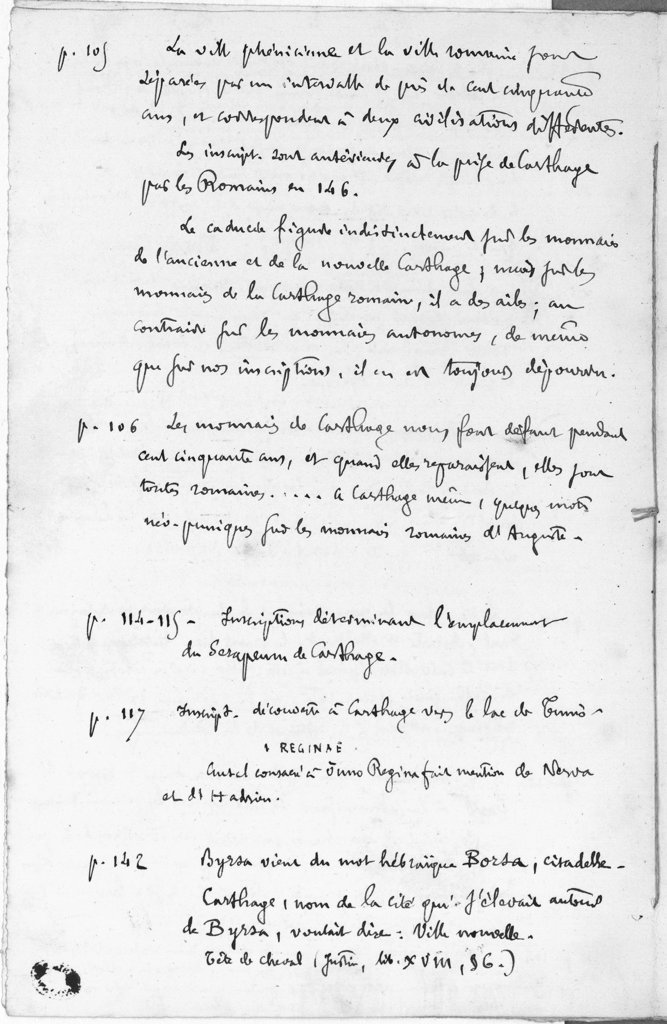 p. 105 La ville phénicienne et la ville romaine sont
séparées par un intervalle de près de cent cinquante
ans, et correspondent à deux civilisations différentes.
Les inscript. sont antérieures à la prise de Carthage
par les Romains en 146.
Le caducée figure indistinctement sur les monnaies
de l'ancienne et de la nouvelle Carthage ; mais sur les
monnaies de la Carthage romaine, il a des ailes ; au
contraire sur les monnaies autonomes, de même
que sur nos inscriptions, il en est toujours dépourvu.
p. 106 Les monnaies de Carthage nous font défaut pendant
cent cinquante ans, et quand elles reparaissent, elles sont
toutes romaines. .... à Carthage même, quelques mots
néo-puniques sur les monnaies romaines d'Auguste.
p. 114-115 - Inscriptions déterminant l'emplacement
du Serapeum de Carthage.
p. 117 Inscript. découverte à Carthage vers le lac de Tunis -
REGINAE
Autel consacré à Juno Regina fait mention de Nerva
et d'Hadrien.
p. 142 Byrsa vient du mot hébraïque Borsa, citadelle -
Carthage, nom de la cité qui s'élevait autour
de Byrsa, voulait dire : Ville nouvelle.
Tête de cheval (Justin, lib. XVIII, §6.)